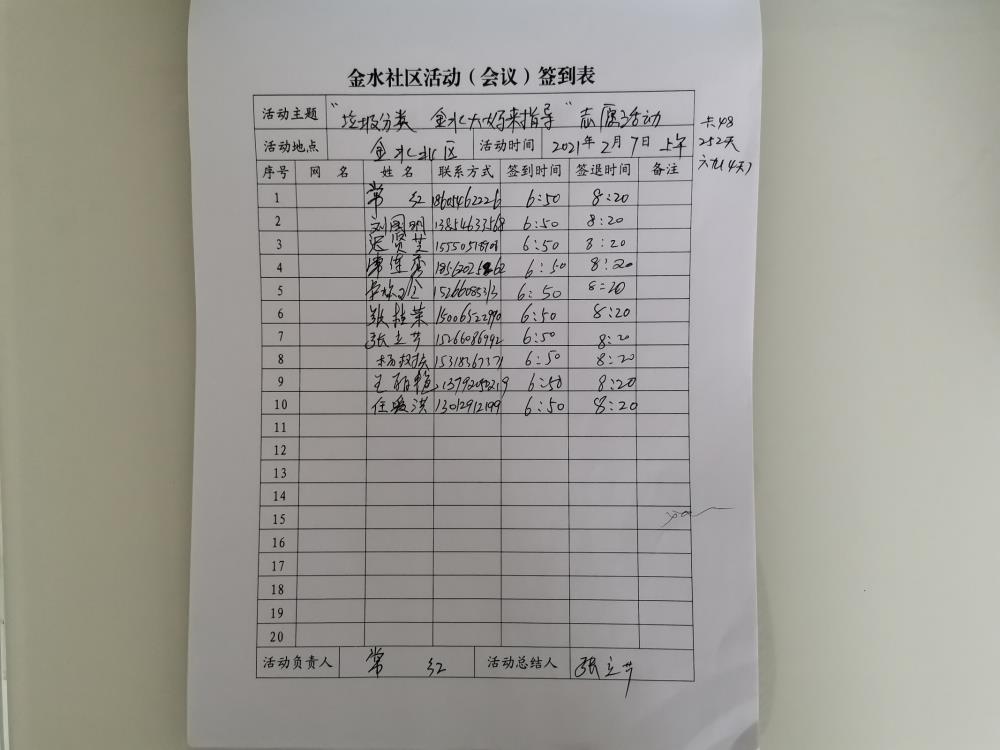 金水社区活动（会议）签到表
活动主题 "垃圾分类 金水大妈来指导"志愿活动
活动地点 金水北区 活动时间 2021年2月7日上午
卡48
252天
序号 网 名 姓 名 联系方式 签到时间 签退时间 备注
1 常 红 18605462226 6:50 8:20
2 刘国明 13854637568 6:50 8:20
3 迟贤芝 6:50 8:20
4 6:50 8:20
5 6:50 8:20
6 张桂荣 15006522990 6:50 8:20
7 张立芳 15266086992 6:50 8:20
8 15318367371 6:50 8:20
9 王 6:50 8:20
10 任爱洪 13012912199 6:50 8:20
11
12
13
14
15
16
17
18
19
20
活动负责人 常 红 活动总结人 张立芳